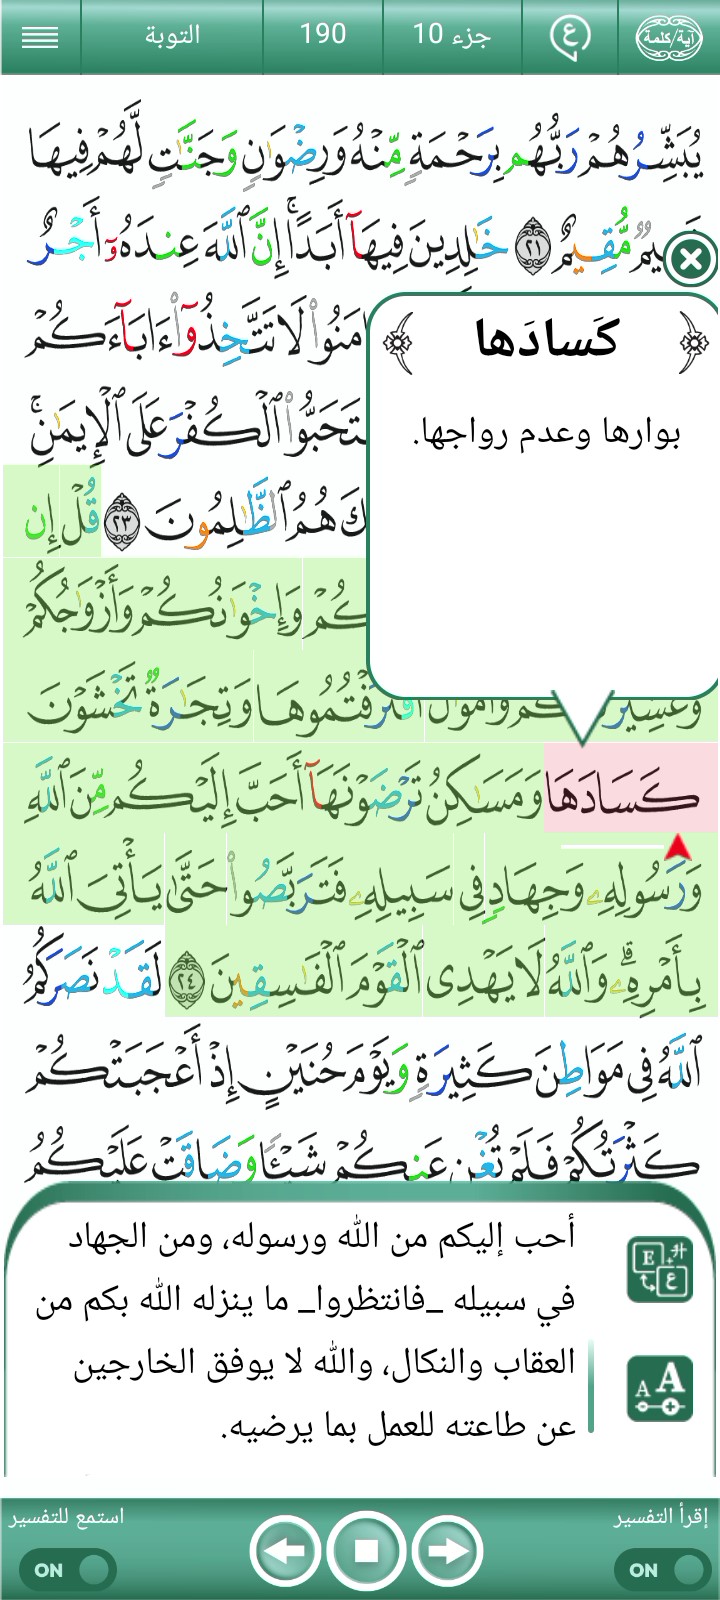 آية/كلمة
ع
جزء 10
190
التوبة
يُبَشِّرُهُمْ رَبُّهُم بِرَحْمَةٍ مِّنْهُ وَرِضْوَٰنٍ وَجَنَّٰتٍ لَّهُمْ فِيهَا
مُّقِيمٌ ٢١ خَٰلِدِينَ فِيهَآ أَبَدًا ۚ إِنَّ ٱللَّهَ عِندَهُۥٓ أَجْرٌ
لَا تَتَّخِذُوٓا۟ ءَابَآءَكُمْ
ٱلْكُفْرَ عَلَى ٱلْإِيمَٰنِ ۚ
هُمُ ٱلظَّٰلِمُونَ ٢٣ قُلْ إِن
وَإِخْوَٰنُكُمْ وَأَزْوَٰجُكُمْ
ٱقْتَرَفْتُمُوهَا وَتِجَٰرَةٌ تَخْشَوْنَ
كَسَادَهَا وَمَسَٰكِنُ تَرْضَوْنَهَآ أَحَبَّ إِلَيْكُم مِّنَ ٱللَّهِ
وَرَسُولِهِۦ وَجِهَادٍ فِى سَبِيلِهِۦ فَتَرَبَّصُوا۟ حَتَّىٰ يَأْتِىَ ٱللَّهُ
بِأَمْرِهِۦ ۗ وَٱللَّهُ لَا يَهْدِى ٱلْقَوْمَ ٱلْفَٰسِقِينَ ٢٤ لَقَدْ نَصَرَكُمُ
ٱللَّهُ فِى مَوَاطِنَ كَثِيرَةٍ وَيَوْمَ حُنَيْنٍ إِذْ أَعْجَبَتْكُمْ
كَثْرَتُكُمْ فَلَمْ تُغْنِ عَنكُمْ شَيْـًٔا وَضَاقَتْ عَلَيْكُمُ
كَسادَها
بوارها وعدم رواجها.
أحب إليكم من الله ورسوله، ومن الجهاد
في سبيله _فانتظروا_ ما ينزله الله بكم من
العقاب والنكال، والله لا يوفق الخارجين
عن طاعته للعمل بما يرضيه.
إقرأ التفسير
ON
استمع للتفسير
ON